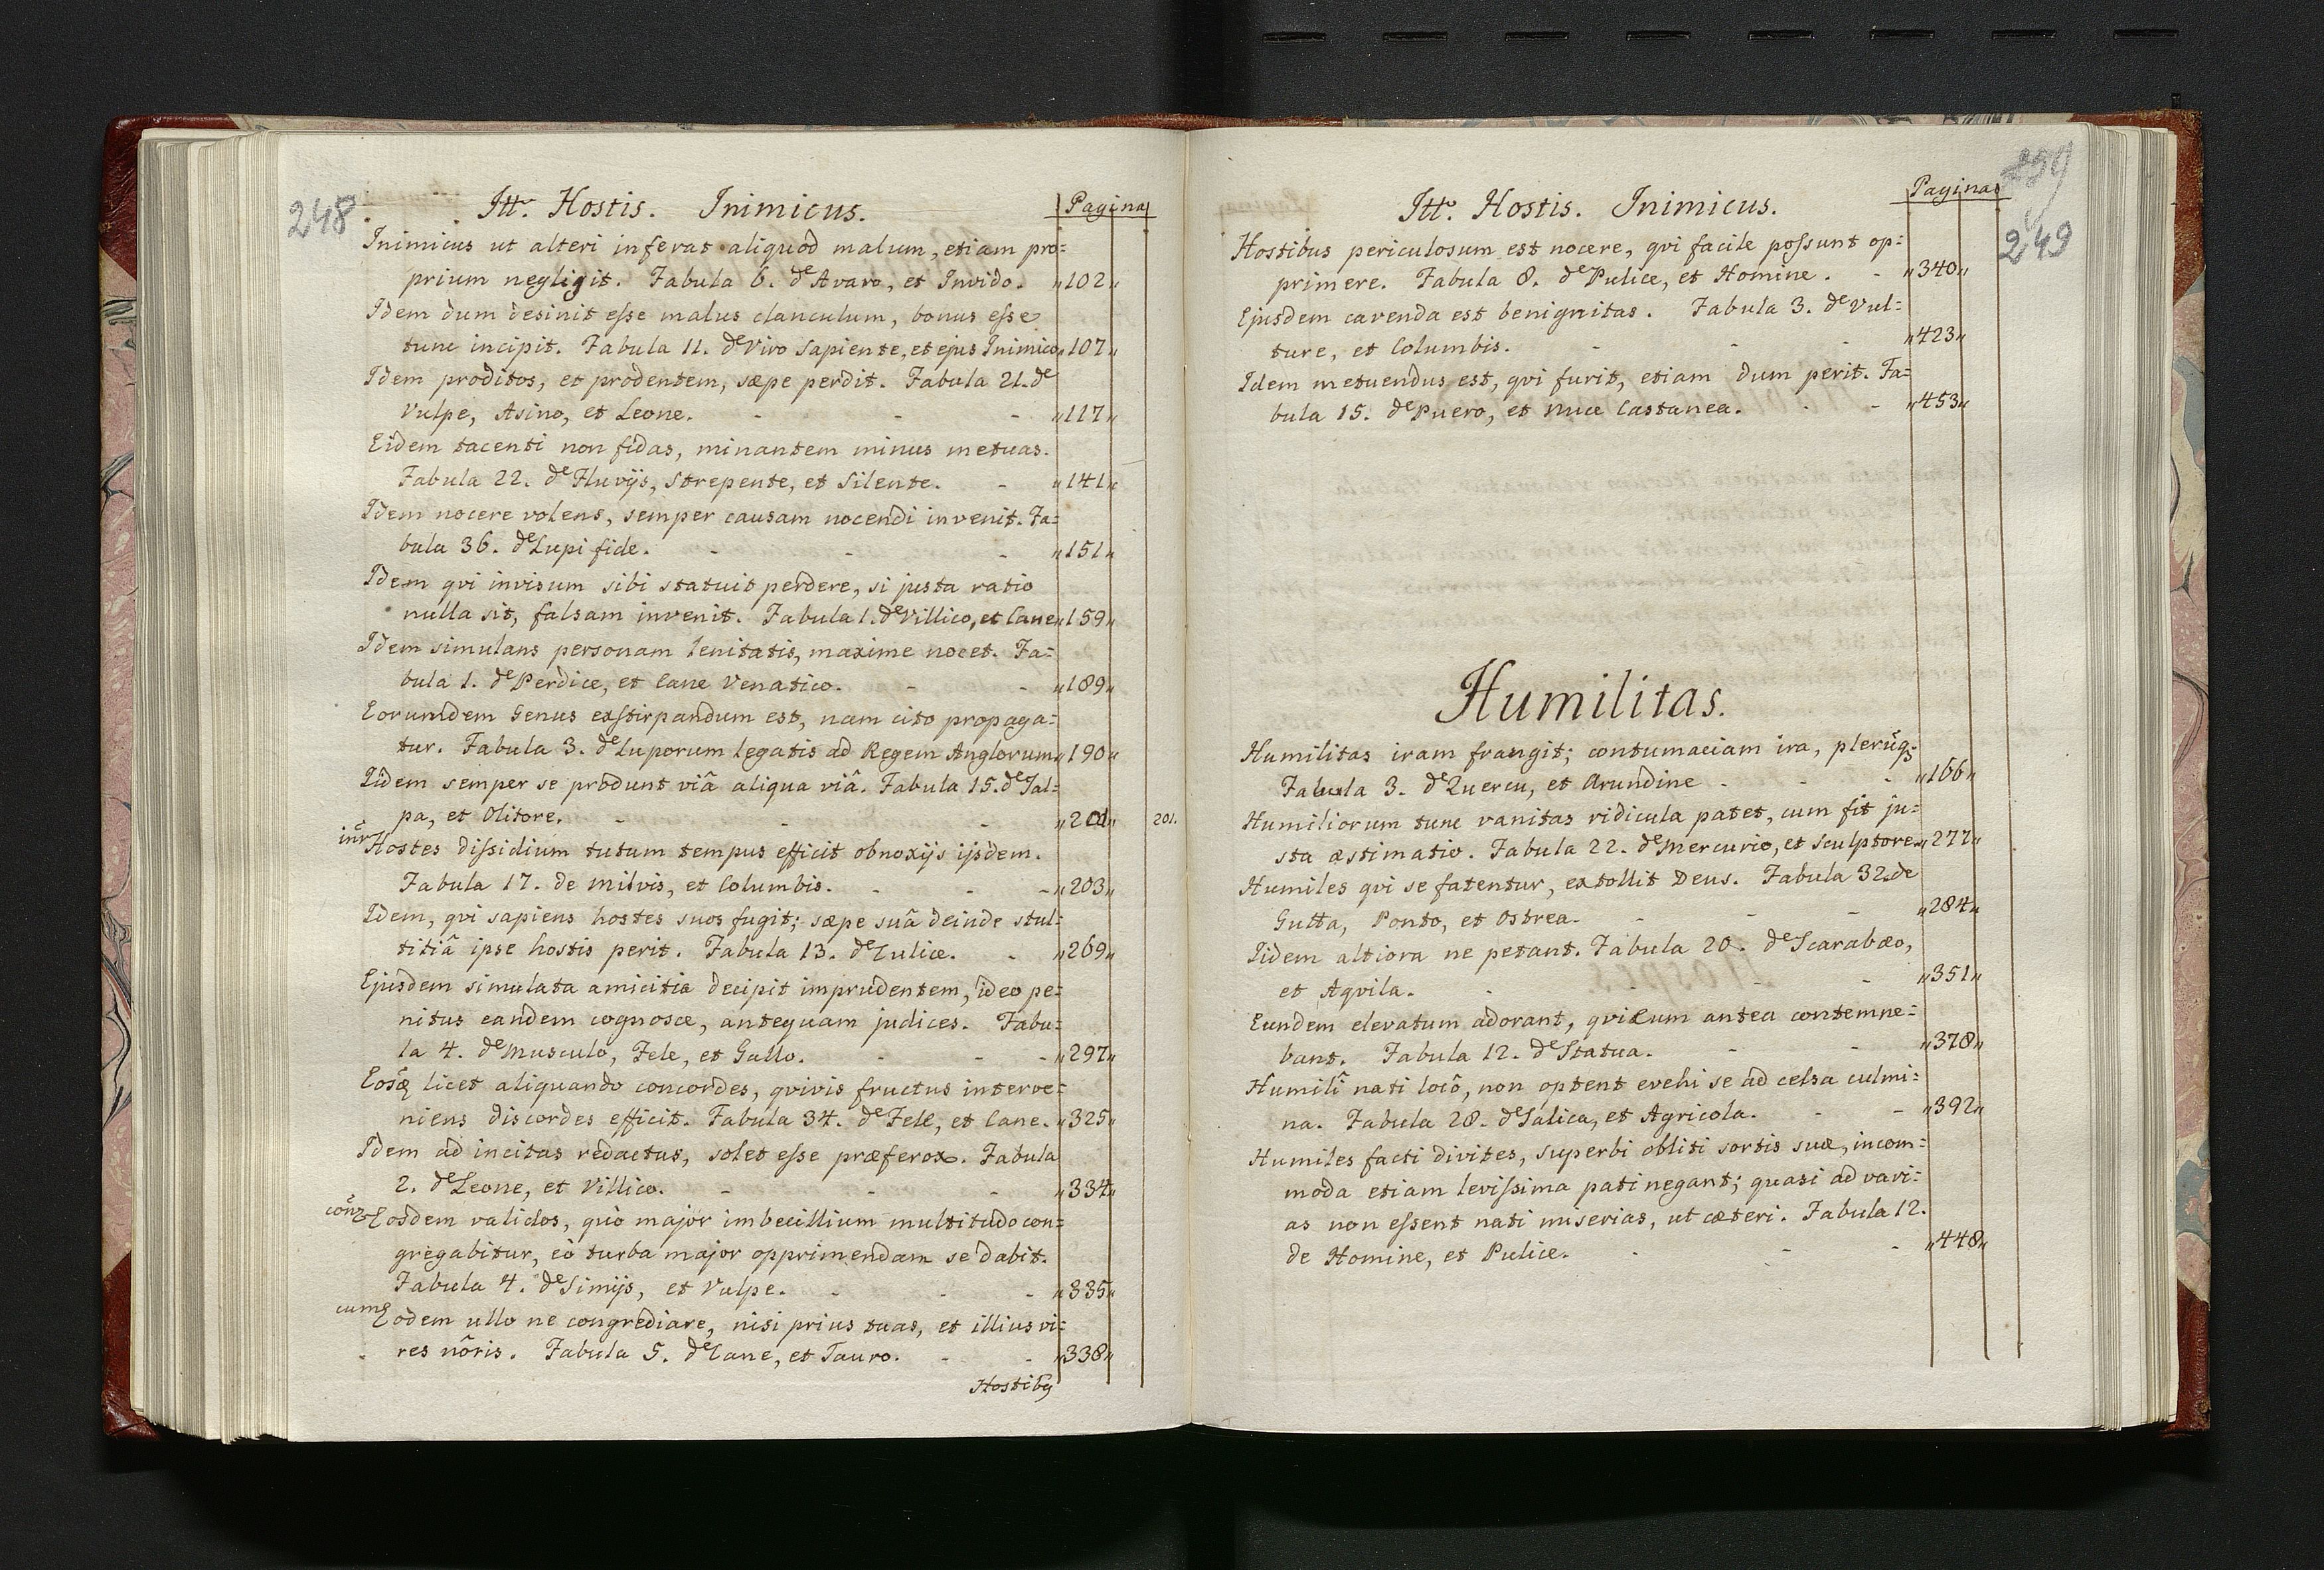 248
Itt. Hostis. Inimicus. Pagina
Inimicus ut alteri inferat aliquod malum, etiam pro=
prium negligit. Fabula 6. de Avaro, et Invido. „102„
Idem dum desinit eſse malus clanculum, bonus eſse
tunc incipit. Fabula 11. de Viro Sapiente, et ejus Inimico „107„
Idem proditos, et prodentem, sæpe perdit. Fabula 21. de
Vulpe, Asino, et Leone. - - - „117„
Eidem tacenti non fidas, minantem minus metuas.
Fabula 22. de Fluvijs, Strepente, et Silente. - „141„
Idem nocere volens, semper causam nocendi invenit. Fa=
bula 36. de Lupi fide. - - - „151„
Idem qvi invisum sibi statuit perdere, si justa ratio
nulla sit, falsam invenit. Fabula 1. de Villico, et Cane „159„
Idem simulans personam lenitatis, maxime nocet. Fa=
bula 1. de Perdice, et Cane Venatico. - - „189„
Eorumdem Genus exstirpandum est, nam cito propaga=
tur. Fabula 3. de Luporum legatis ad Regem Anglorum „190„
Iidem semper se produnt viâ aliqua viâ. Fabula 15. de Tal=
pa, et Olitore. - - - „201„ 201.
inr̃ Hostes diſsidium tutum tempus efficit obnoxijs ijsdem.
Fabula 17. de Milvis, et Columbis. - - - „203„
Idem, qvi sapiens hostes suos fugit; sæpe suâ deinde stul=
titiâ ipse hostis perit. Fabula 13. de Culice. - „269„
Ejusdem simulata amicitia decipit imprudentem, ideo pe=
nitus eandem cognosce, antequam judices. Fabu=
la 4. de Musculo, Fele, et Gallo. - - - „297„
licet aliquando concordes, qvivis fructus interve=
niens discordes efficit. Fabula 34. de Fele, et Cane. „325„
Idem ad incitas redactus, solet eſse præferox. Fabula
2. de Leone, et Villico. - - - „334„
Eosdem validos, quò major imbecillium multitudo con=
gregabitur, eò turba major opprimendam se dabit.
Fabula 4. de Simijs, et Vulpe. - - - „335„
cum Eodem ullo ne congrediare, nisi prius tuas, et illius vi=
res nôris. Fabula 5. de Cane, et Tauro. - - „338„
Hostibꝰ
249
Itt. Hostis. Inimicus. Pagina
Hostibus periculosum est nocere, qvi facile poſsunt op=
primere. Fabula 8. de Pulice, et Homine. - „340„
Ejusdem cavenda est benignitas. Fabula 3. de Vul=
ture, et Columbis. - - - „423„
Idem metuendus est, qvi furit, etiam dum perit. Fa=
bula 15. de Puero, et Nuce Castanea. - - „453„
Humilitas.
Humilitas iram frangit; contumaciam ira, plerũqꝫ
Fabula 3. de Quercu, et Arundine - - - „166„
Humiliorum tunc vanitas ridicula patet, cum fit ju=
sta æstimatio. Fabula 22. de Mercurio, et Sculptore. „277„
Humiles qvi se fatentur, extollit Deus. Fabula 32. de
Gutta, Ponto, et Ostrea. - - - „284„
Iidem altiora ne petant. Fabula 20. de Scarabæo,
et Aqvila. - - - „351„
Eundem elevatum adorant, qvi eum antea contemne=
bant. Fabula 12. de Statua. - - „378„
Humilî nati locô, non optent evehi se ad celsa culmi=
na. Fabula 28. de Salica, et Agricola. - - „392„
Humiles facti divites, superbi obliti sortis suæ, incom=
moda etiam leviſsima pati negant; quasi ad vari=
as non eſsent nati miserias, ut cæteri. Fabula 12.
de Homine, et Pulice. - - - „448„